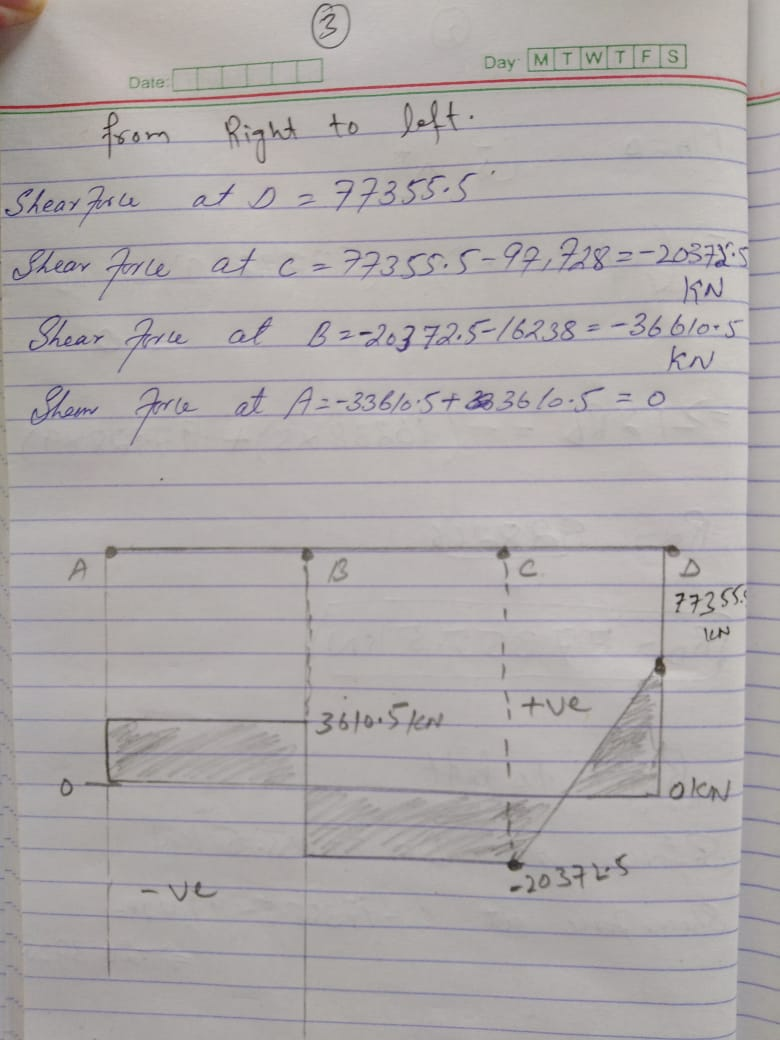 3
Date:
Day M T W T F S
from Right to left.
Shear Force at D = 77355.5
Shear Force at C = 77355.5-97,728 = -20372.5
KN
Shear Force at B = -20372.5-16238 = -36610.5
KN
Shear Force at A = -33610.5+ 33610.5 = 0
A B C D
77355.
KN
+ve
3610.5 KN
0
0 KN
-20372.5
-ve